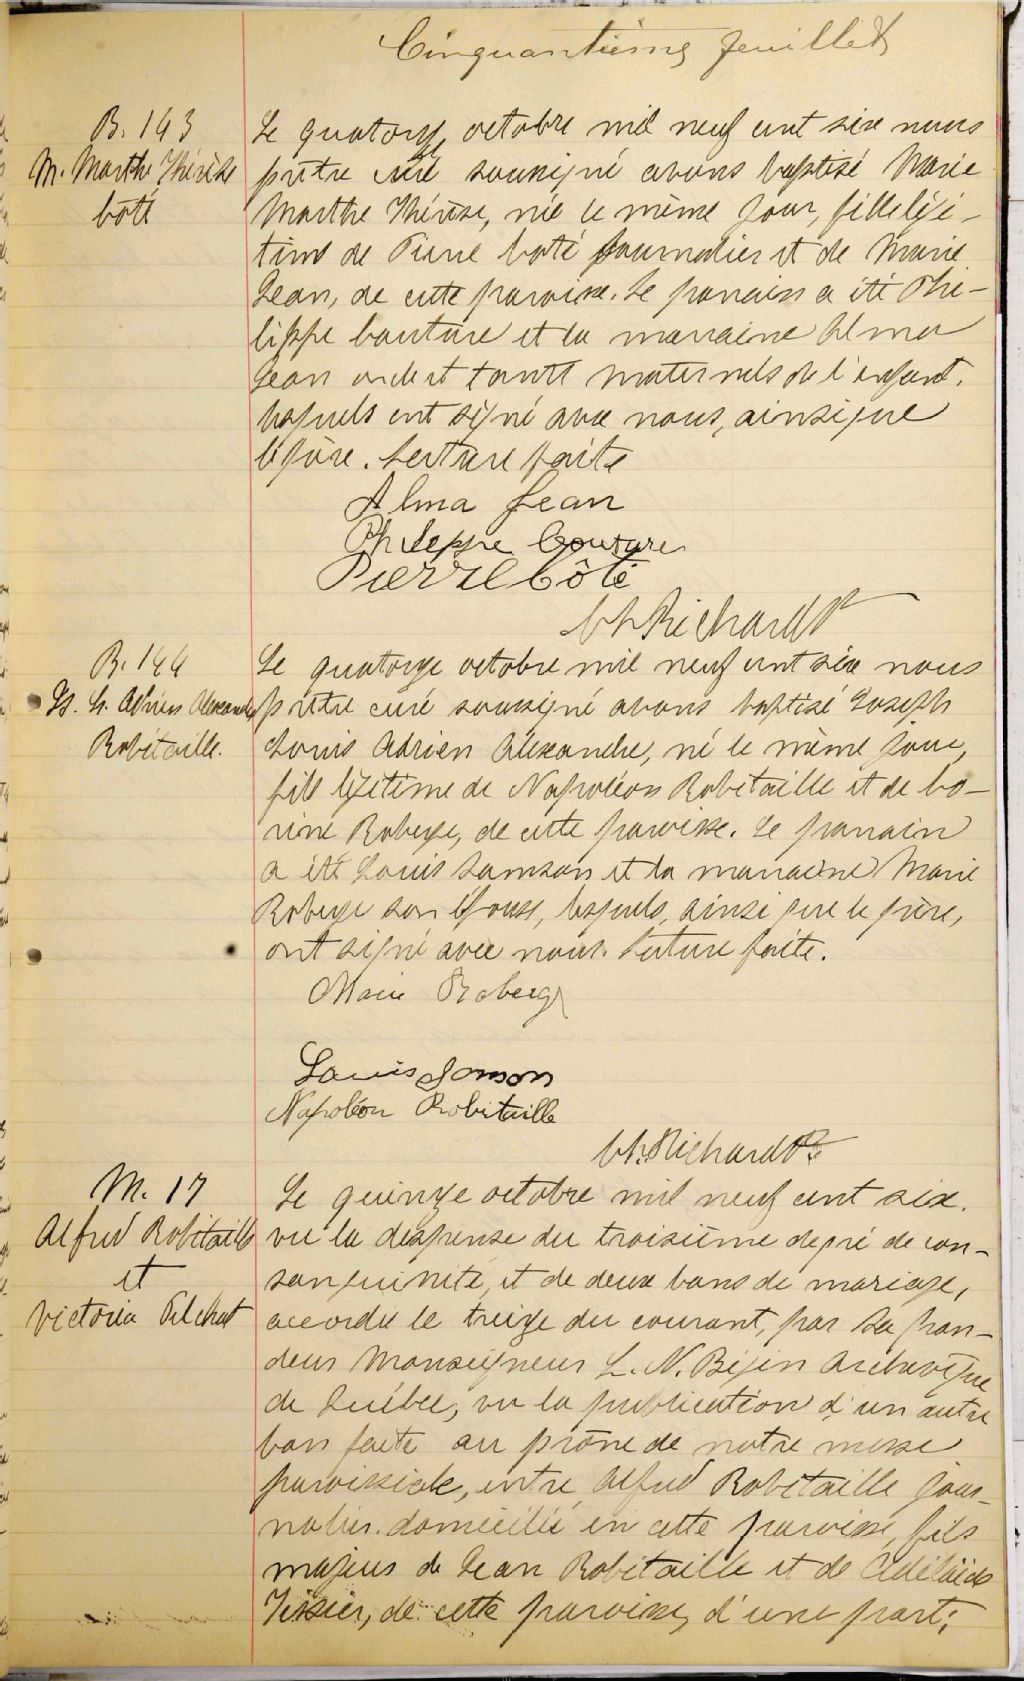 Cinquantième feuillet
B. 143
M. Marthe Thérèse
Côté
Le quatorze octobre mil neuf cent six nous
prêtre curé soussigné avons baptisé Marie
Marthe Thérèse, née le même jour, fille légi-
time de Pierre Côté journalier et de Marie
Jean, de cette paroisse. Le parrain a été Phi-
lippe Couture et la marraine Alma
Jean oncle et tante maternels de l'enfant,
lesquels ont signé avec nous, ainsi que
le père. Lecture faite
Alma Jean
Philippe Couture
Pierre Côté
Ch. Richard Ptre
B. 144
Js. Ls. Adrien Alexandre
Robitaille.
Le quatorze octobre mil neuf cent six nous
prêtre curé soussigné avons baptisé Joseph
Louis Adrien Alexandre, né le même jour,
fils légitime de Napoléon Robitaille et de Co-
rine Roberge, de cette paroisse. Le parrain
a été Louis Samson et la marraine Marie
Roberge son épouse, lesquels, ainsi que le père,
ont signé avec nous. Lecture faite.
Marie Roberge
Louis Samson
Napoléon Robitaille
Ch. Richard Ptre
M. 17
Alfred Robitaille
et
Victoria
Le quinze octobre mil neuf cent six.
vu la dispense du troisième degré de con-
sanguinité, et de deux bans de mariage,
accordée le treize du courant, par Sa Gran-
deur Monseigneur L. N. Bégin Archevêque
de Québec, vu la publication d'un autre
ban faite au prône de notre messe
paroissiale, entre Alfred Robitaille jour-
nalier domicilié en cette paroisse, fils
majeur de Jean Robitaille et de Adélaïde
Tessier, de cette paroisse, d'une part;